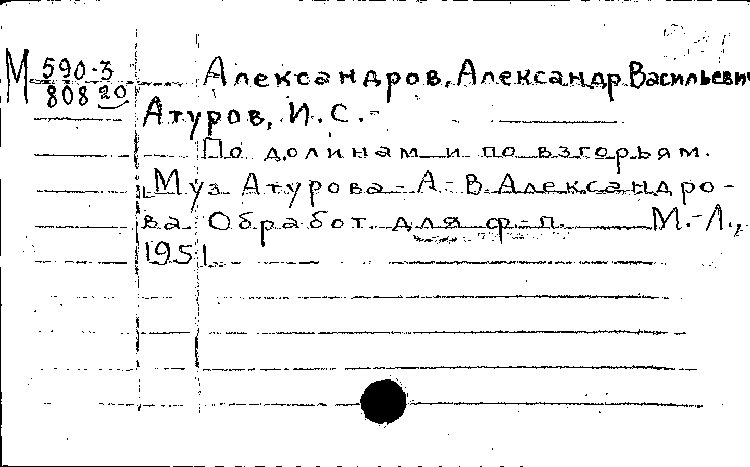 М 590-3
808 20
Александров, Александр Васильевич
Атуров, И. С. -
По долинам и по взгорьям.
Муз. Атурова - А. В. Александро-
ва. Обработ. для ф.-п. М.-Л.,
1951.